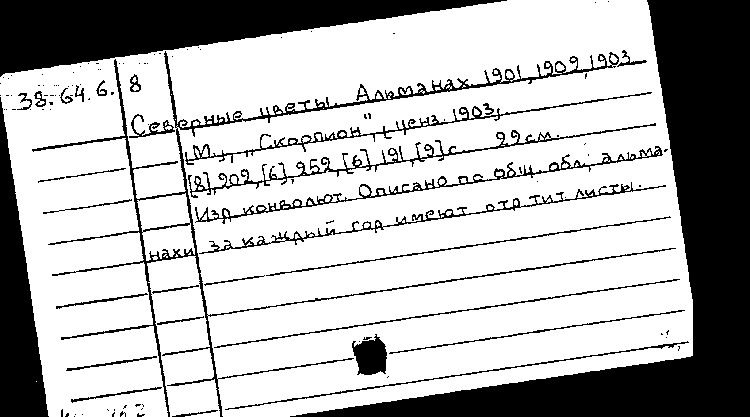 38.64.6. 8
Северные цветы. Альманах. 1901, 1902, 1903
[М.], „Скорпион", [ценз. 1903,
[8], 202, [6], 252, [6], 191, [9] с. 22 см.
Изд. конволют. Описано по общ. обл., альма-
нахи за каждый год имеют отд. тит. листы.